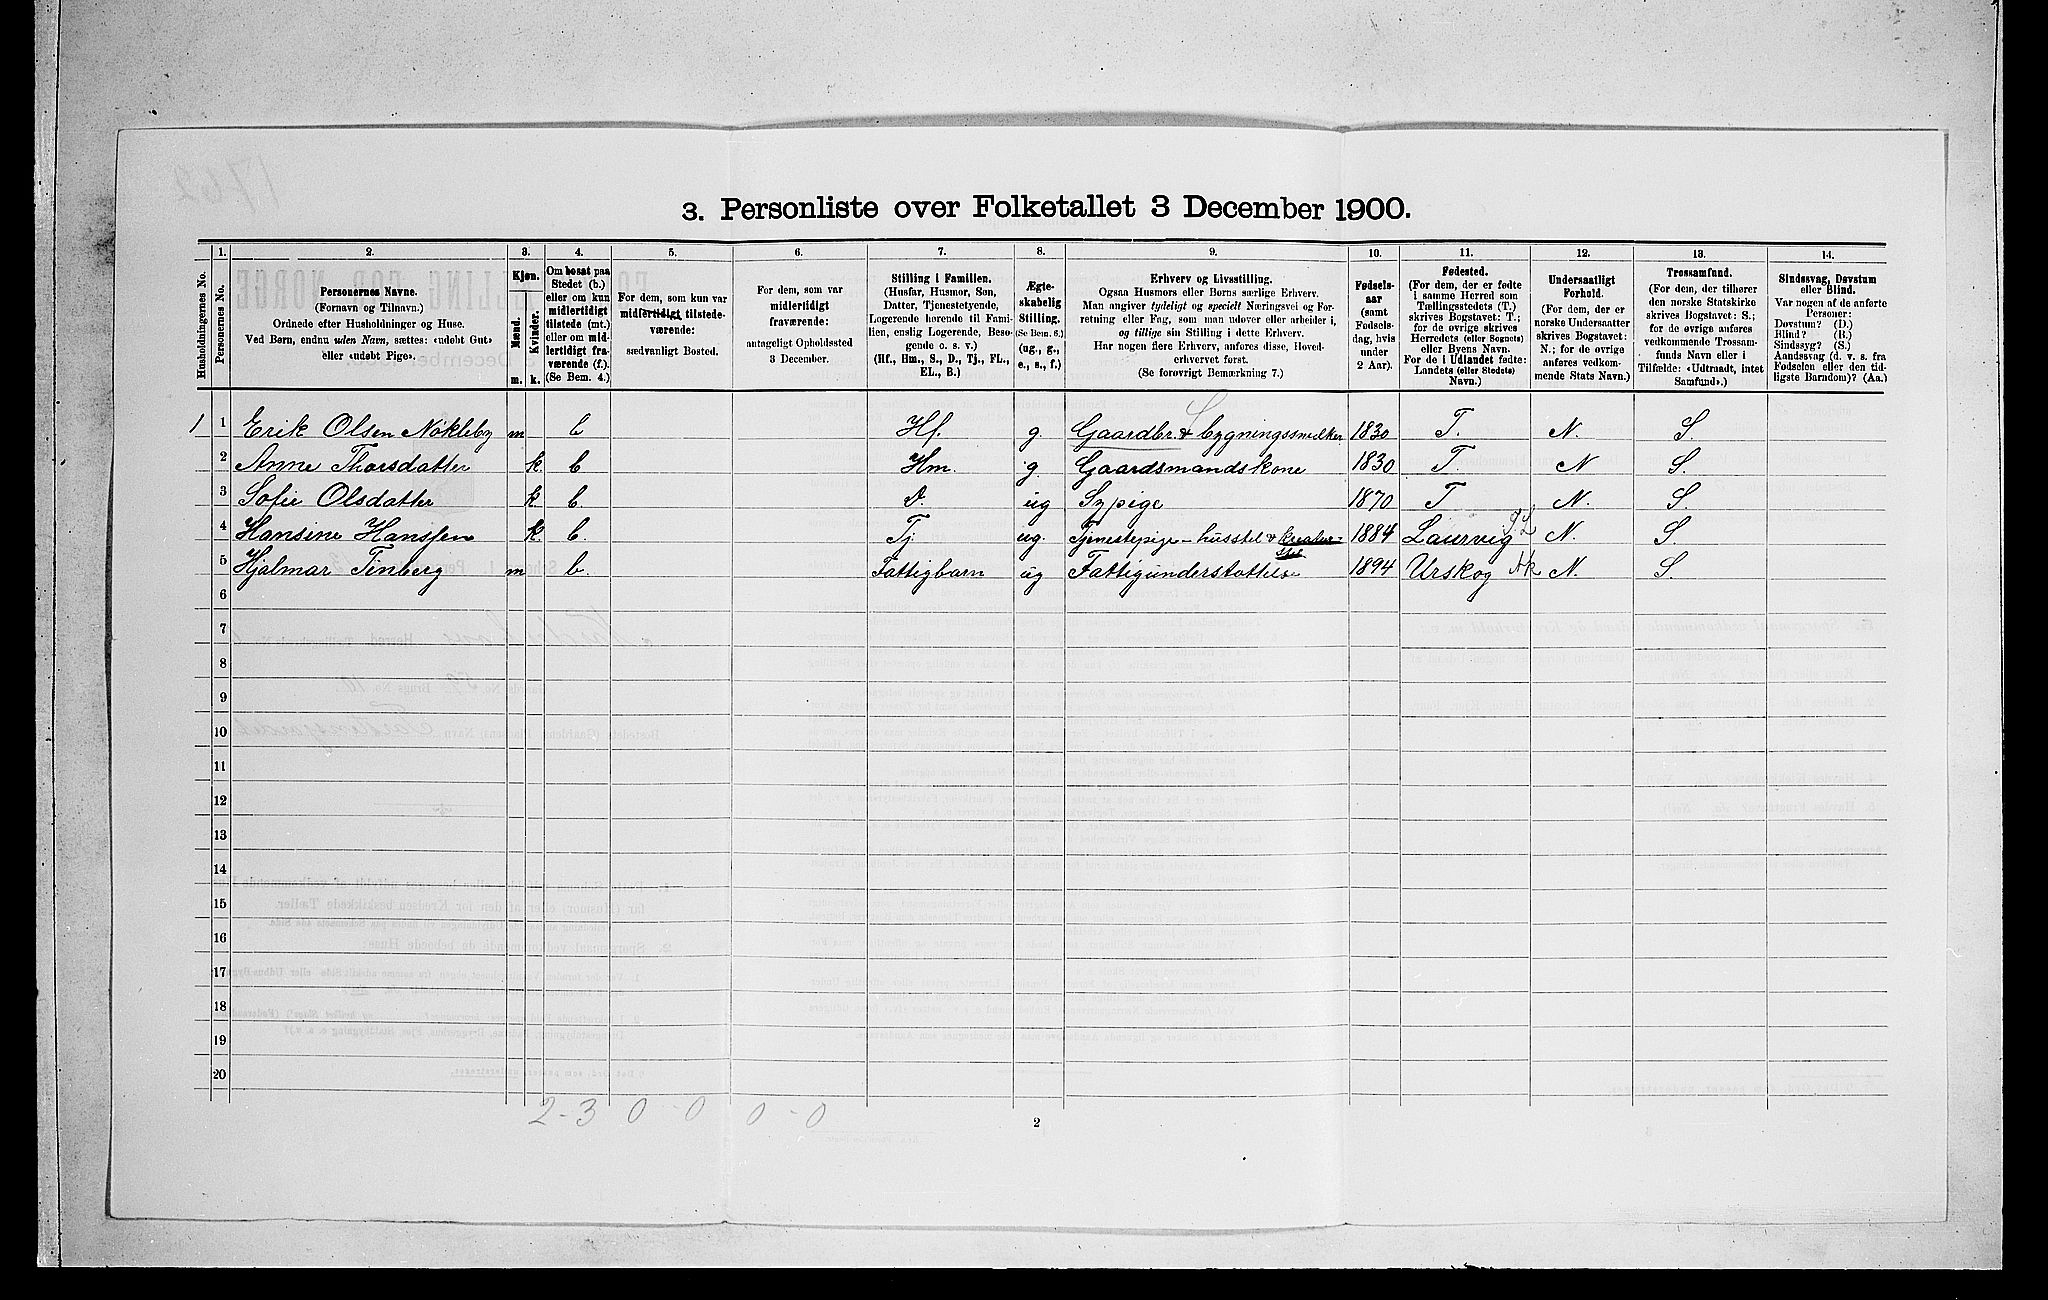 3. Personliste over Folketallet 3 December 1900.
Husholdningernes No.
1.
Personernes No.
2.
Personernes Navne.
(Fornavn og Tilnavn.)
Ordnede efter Husholdninger og Huse.
Ved Børn, endnu uden Navn, sættes: «udøbt Gut»
eller «udøbt Pige».
3.
Kjøn.
Mænd.
Kvinder.
m. k.
4.
Om bosat paa
Stedet (b.)
eller om kun
midlertidigt
tilstede (mt.)
eller om mid-
lertidigt fra-
værende (f.).
(Se Bem. 4.)
5.
For dem, som kun var
midlertidigt tilstede-
værende:
sædvanligt Bosted.
6.
For dem, som var
midlertidigt
fraværende:
antageligt Opholdssted
3 December.
7.
Stilling i Familien.
(Husfar, Husmor, Søn,
Datter, Tjenestetyende,
Logerende hørende til Fami-
lien, enslig Logerende, Besø-
gende o. s. v.)
(Hf., Hm., S., D., Tj., FL.,
EL., B.)
8.
Ægte-
skabelig
Stilling.
(Se Bem. 6.)
(ug., g.,
e., s., f.)
9.
Erhverv og Livsstilling.
Ogsaa Husmors eller Børns særlige Erhverv.
Man angiver tydeligt og specielt Næringsvei og For-
retning eller Fag, som man udøver eller arbeider i,
og tillige sin Stilling i dette Erhverv.
Har nogen flere Erhverv, anføres disse, Hoved-
erhvervet først.
(Se forøvrigt Bemærkning 7.)
10.
Fødsels-
aar
(samt
Fødsels-
dag, hvis
under
2 Aar).
11.
Fødested.
(For dem, der er fødte
i samme Herred som
Tællingsstedets (T.)
skrives Bogstavet: T.;
for de øvrige skrives
Herredets (eller Sognets)
eller Byens Navn.
For de i Udlandet fødte:
Landets (eller Stedets)
Navn.)
12.
Undersaatligt
Forhold.
(For dem, der er
norske Undersaatter
skrives Bogstavet:
N.; for de øvrige
anføres vedkom-
mende Stats Navn.)
13.
Trossamfund.
(For dem, der tilhører
den norske Statskirke
skrives Bogstavet: S.;
for de øvrige anføres
vedkommende Trossam-
funds Navn eller i
Tilfælde: «Udtraadt, intet
Samfund».)
14.
Sindssvag, Døvstum
eller Blind.
Var nogen af de anførte
Personer:
Døvstum? (D.)
Blind? (B.)
Sindssyg? (S.)
Aandssvag (d. v. s. fra
Fødselen eller den tid-
ligste Barndom)? (Aa.)
1 1 Erik Olsen Nøkleby m b Hf. g. Gaardbr. & bygningssnedker 1830 T. N. S.
2 Anne Thorsdatter k. b Hm. g Gaardsmandskone 1830 T. N S.
3 Sofie Olsdatter k. b. d. ug Sypige 1870 T N. S.
4 Hansine Hanssen k. b. Tj ug. Tjenestepige - husstel & kreatur- 1884 Laurvig N. S.
stel
5 Hjalmar Tinberg m b. Fattigbarn ug Fattigunderstøttelse 1894 Urskog Ak N. S.
6
7
8
9
10
11
12
13
14
15
16
17
18
19
20
2-3 0-0 0-0
2